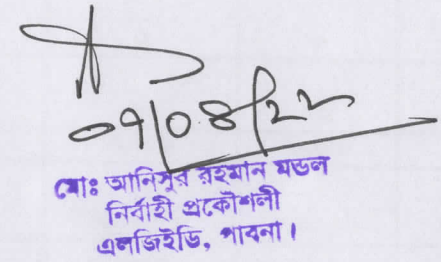 ০৭/০৪/২২
মোঃ আনিসুর রহমান মন্ডল
নির্বাহী প্রকৌশলী
এলজিইডি, পাবনা।